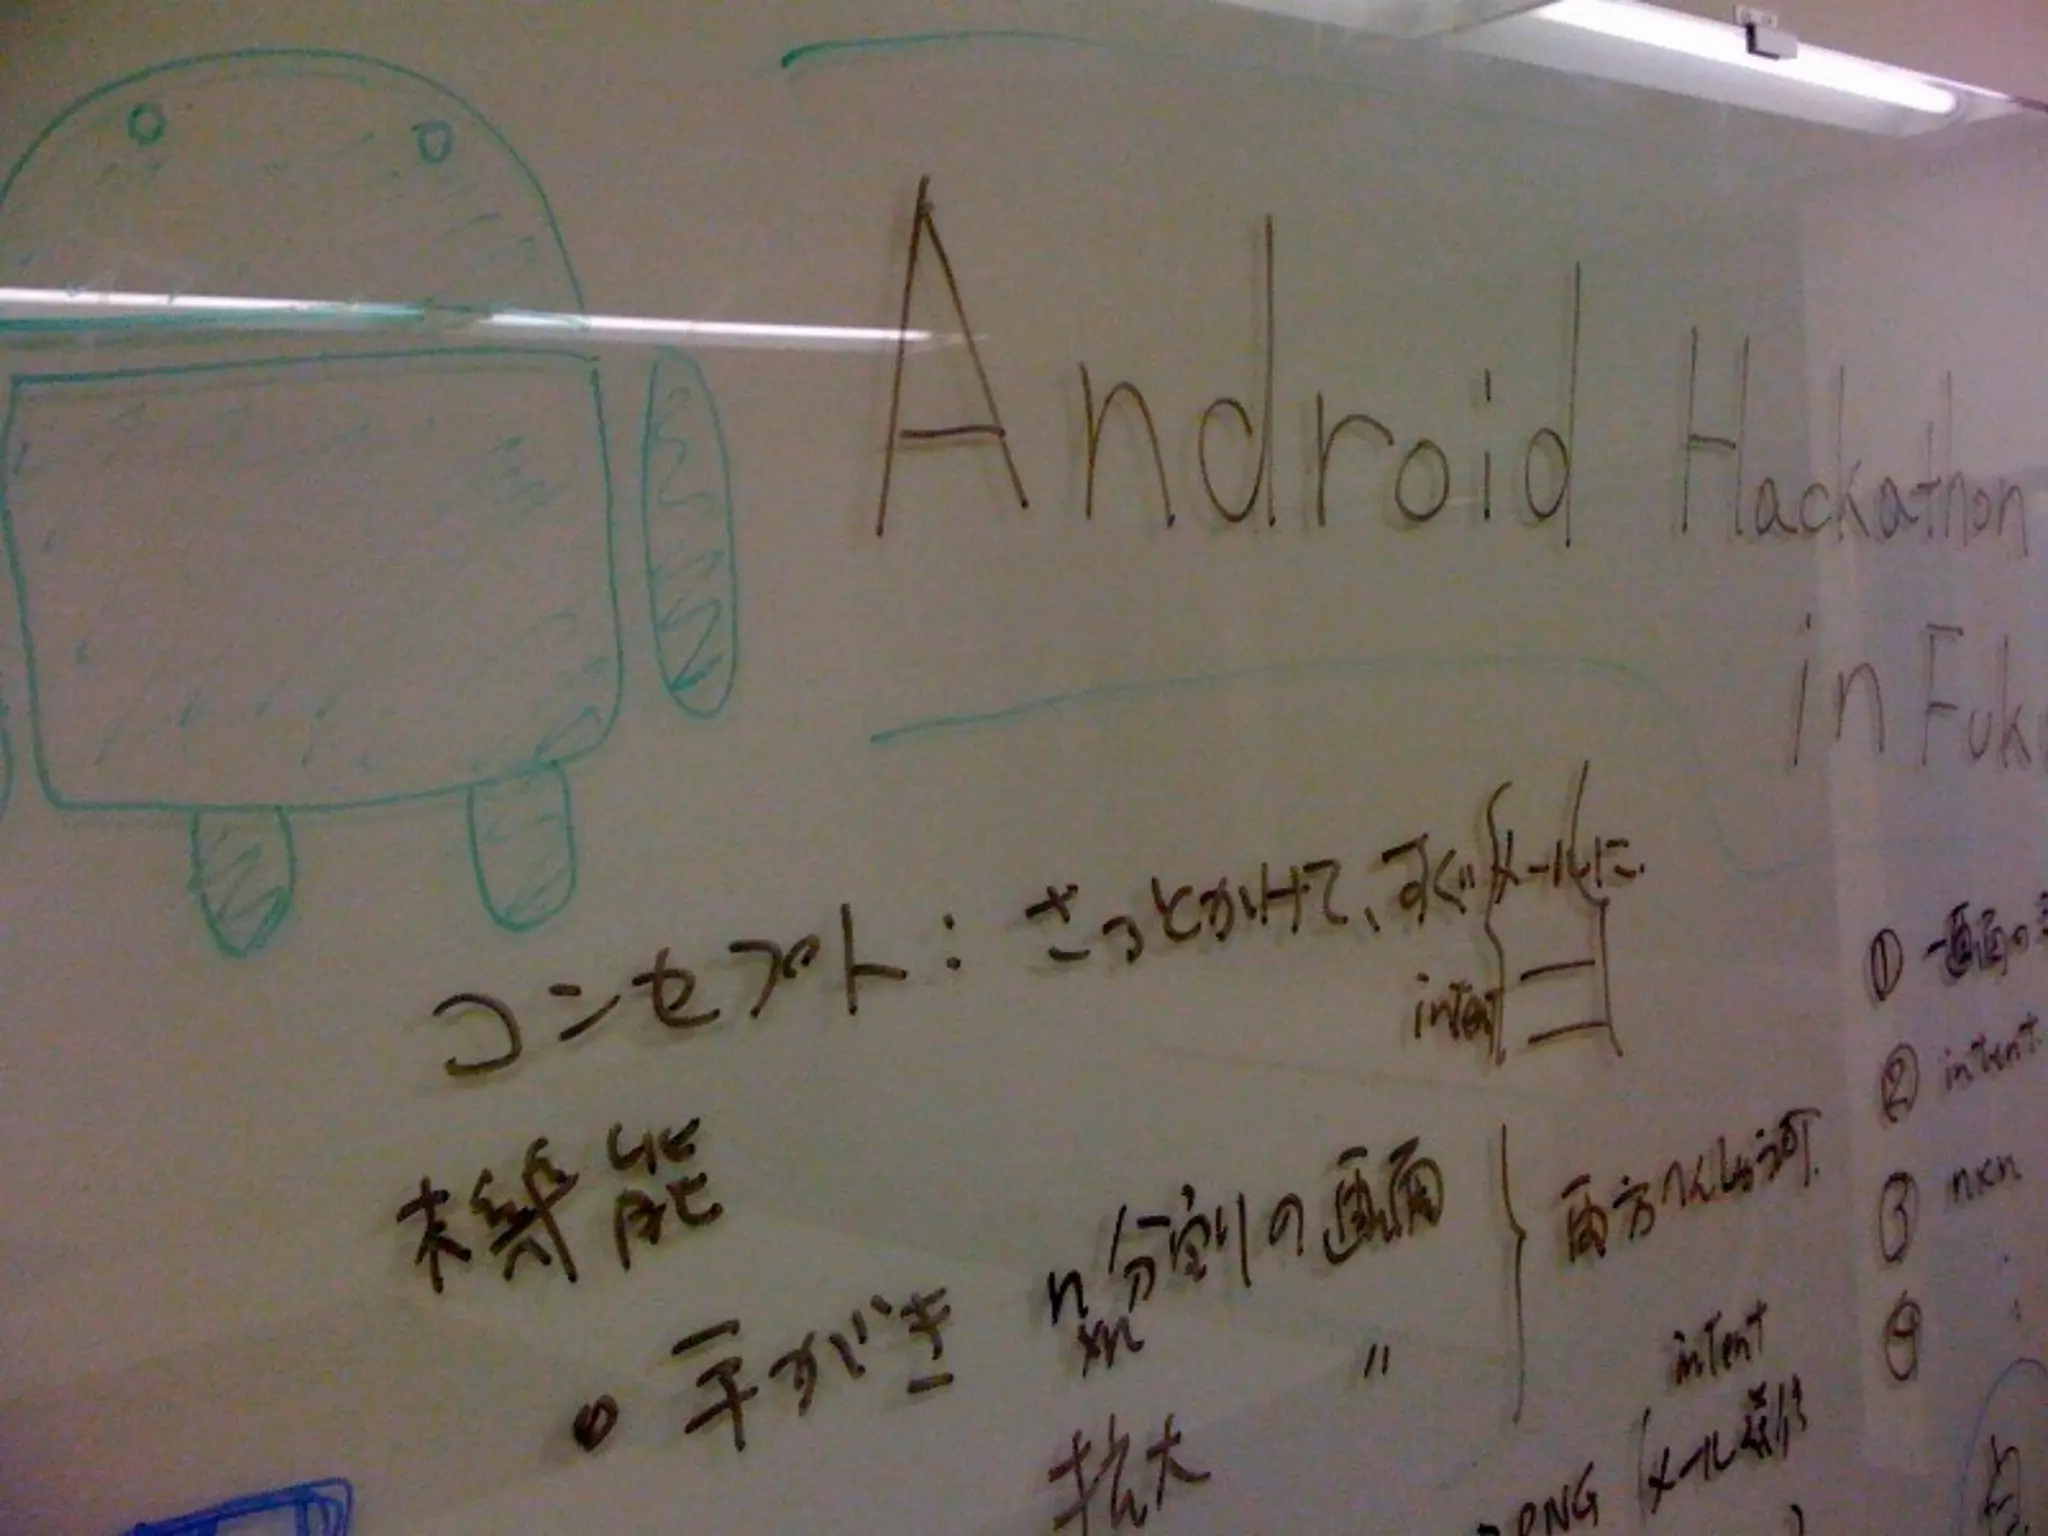 Android Hackathon
in Fuku
コンセプト: さっとかけて、すぐメールに
intent
機能
手がき
n分割の画面
n×n 〃
拡大
両方へんしょう可
intent
PNG
メール添付
① 一画面の
② intent
③ n×n
④